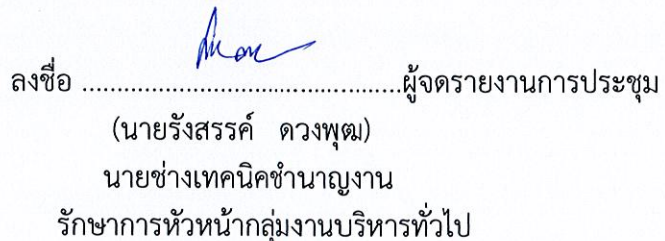 ลงชื่อ ................................................ผู้จดรายงานการประชุม
(นายรังสรรค์ ดวงพุฒ)
นายช่างเทคนิคชำนาญงาน
รักษาการหัวหน้ากลุ่มงานบริหารทั่วไป